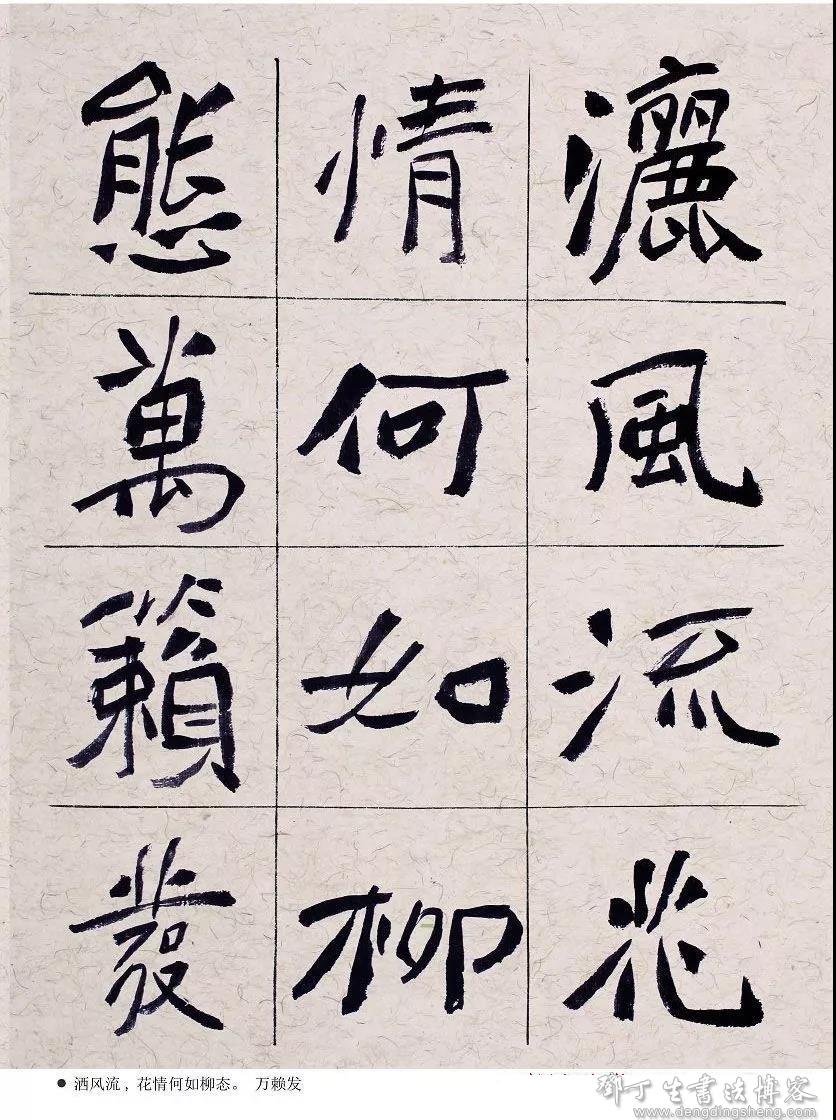 灑風流花
情何如柳
態萬籟發
● 洒风流，花情何如柳态。 万赖发
鄧丁生書法博客
www.dengdingsheng.com